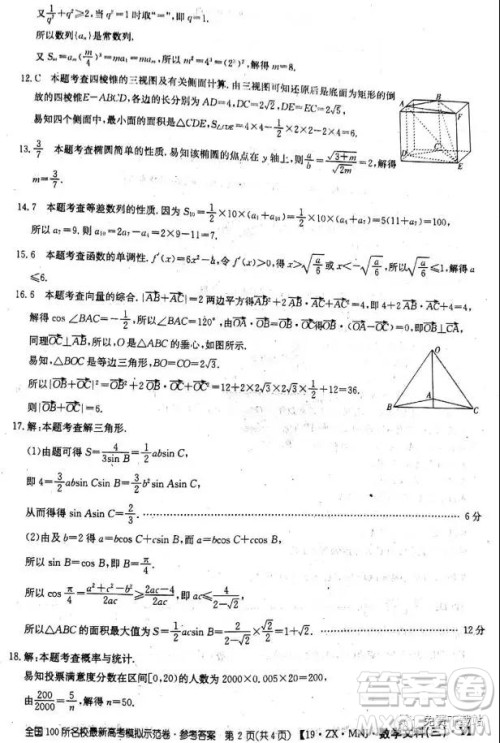 又1/q²+q²≥2,当 q²=1 时取“=”,即公比为 1.
所以数列{aₙ}是常数列.
又 Sₘaₘ(m/4)³=maₘ·aₘ(m/4)³=2·m⁴/4³=2m²,解得 m=8.
12.C 本题考查四棱锥的三视图及有关侧面计算.由三视图可知还原后是底面为矩形的侧
放的四棱锥E-ABCD,各边的长分别为 AD=4,DC=2√2,DE=EC=2√5.
易知四个侧面中,最小的面积是△CDE,
13.3/7 本题考查椭圆简单的性质.易知该椭圆的焦点在 y 轴上,则a/b=√(3+m)/√(2m)=2,解得
m=3/7.
14.7 本题考查等差数列的性质.因为 S₁₀=1/2×10×(a₁+a₁₀)=1/2×10×(a₂+a₉)=55,
所以 a₂=9.则 a₁₆=2×9-11=7.
15.6 本题考查函数的单调性.f′(x)=6x²-h,令 f′(x)>0,得
≤6.
16.6 本题考查向量的综合.|AB+AC|=2 两边平方得AB²+2AB·AC+AC²=4,
解得 cos∠BAC=-1/2,所以∠BAC=120°,由OA·OB=OB·OC得OB·(OA-OC)=0,即
同理OC⊥AB,所以,O是△ABC的垂心,如图.
易知,△BOC是等边三角形,BO=CO=2√3.
所以|OB+OC|²=OB²+2OB·OC+OC²=12+2×2√3×2√3×1/2+12=36.
则|OB+OC|=6.
17.解:本题考查解三角形.
(1)由题可得 S=4/(3sin B)=1/2absin C,
即 4=3/2absin Csin B=3/2b²sin Asin C.
从而得得 sin Asin C=2/3. 6 分
(2)由及 2=bcos C+csin B,
所以 bsin C=bcos C+csin B,即 B=π/4.
所以 cos π/4=(a²+c²-b²)/2ac≥(2ac-4)/2ac,即 ac≤4/(2-√2),
所以△ABC的面积最大值为 S=1/2acsin B=1/2×4/(2-√2)×√2/2=1+√2. 12 分
18.解:本题考查概率与统计.
易知投票满意度分数在区间[0,20)的人数为 2000×0.005×20=200,
由200/2000=5/n,解得 n=50.
A
B
F
D
C
E
O
B
A
C
全国 100 所名校最新高考模拟示范卷·参考答案 第 2 页(共 4 页) 【19·ZX·MNJ·数学文科(三)